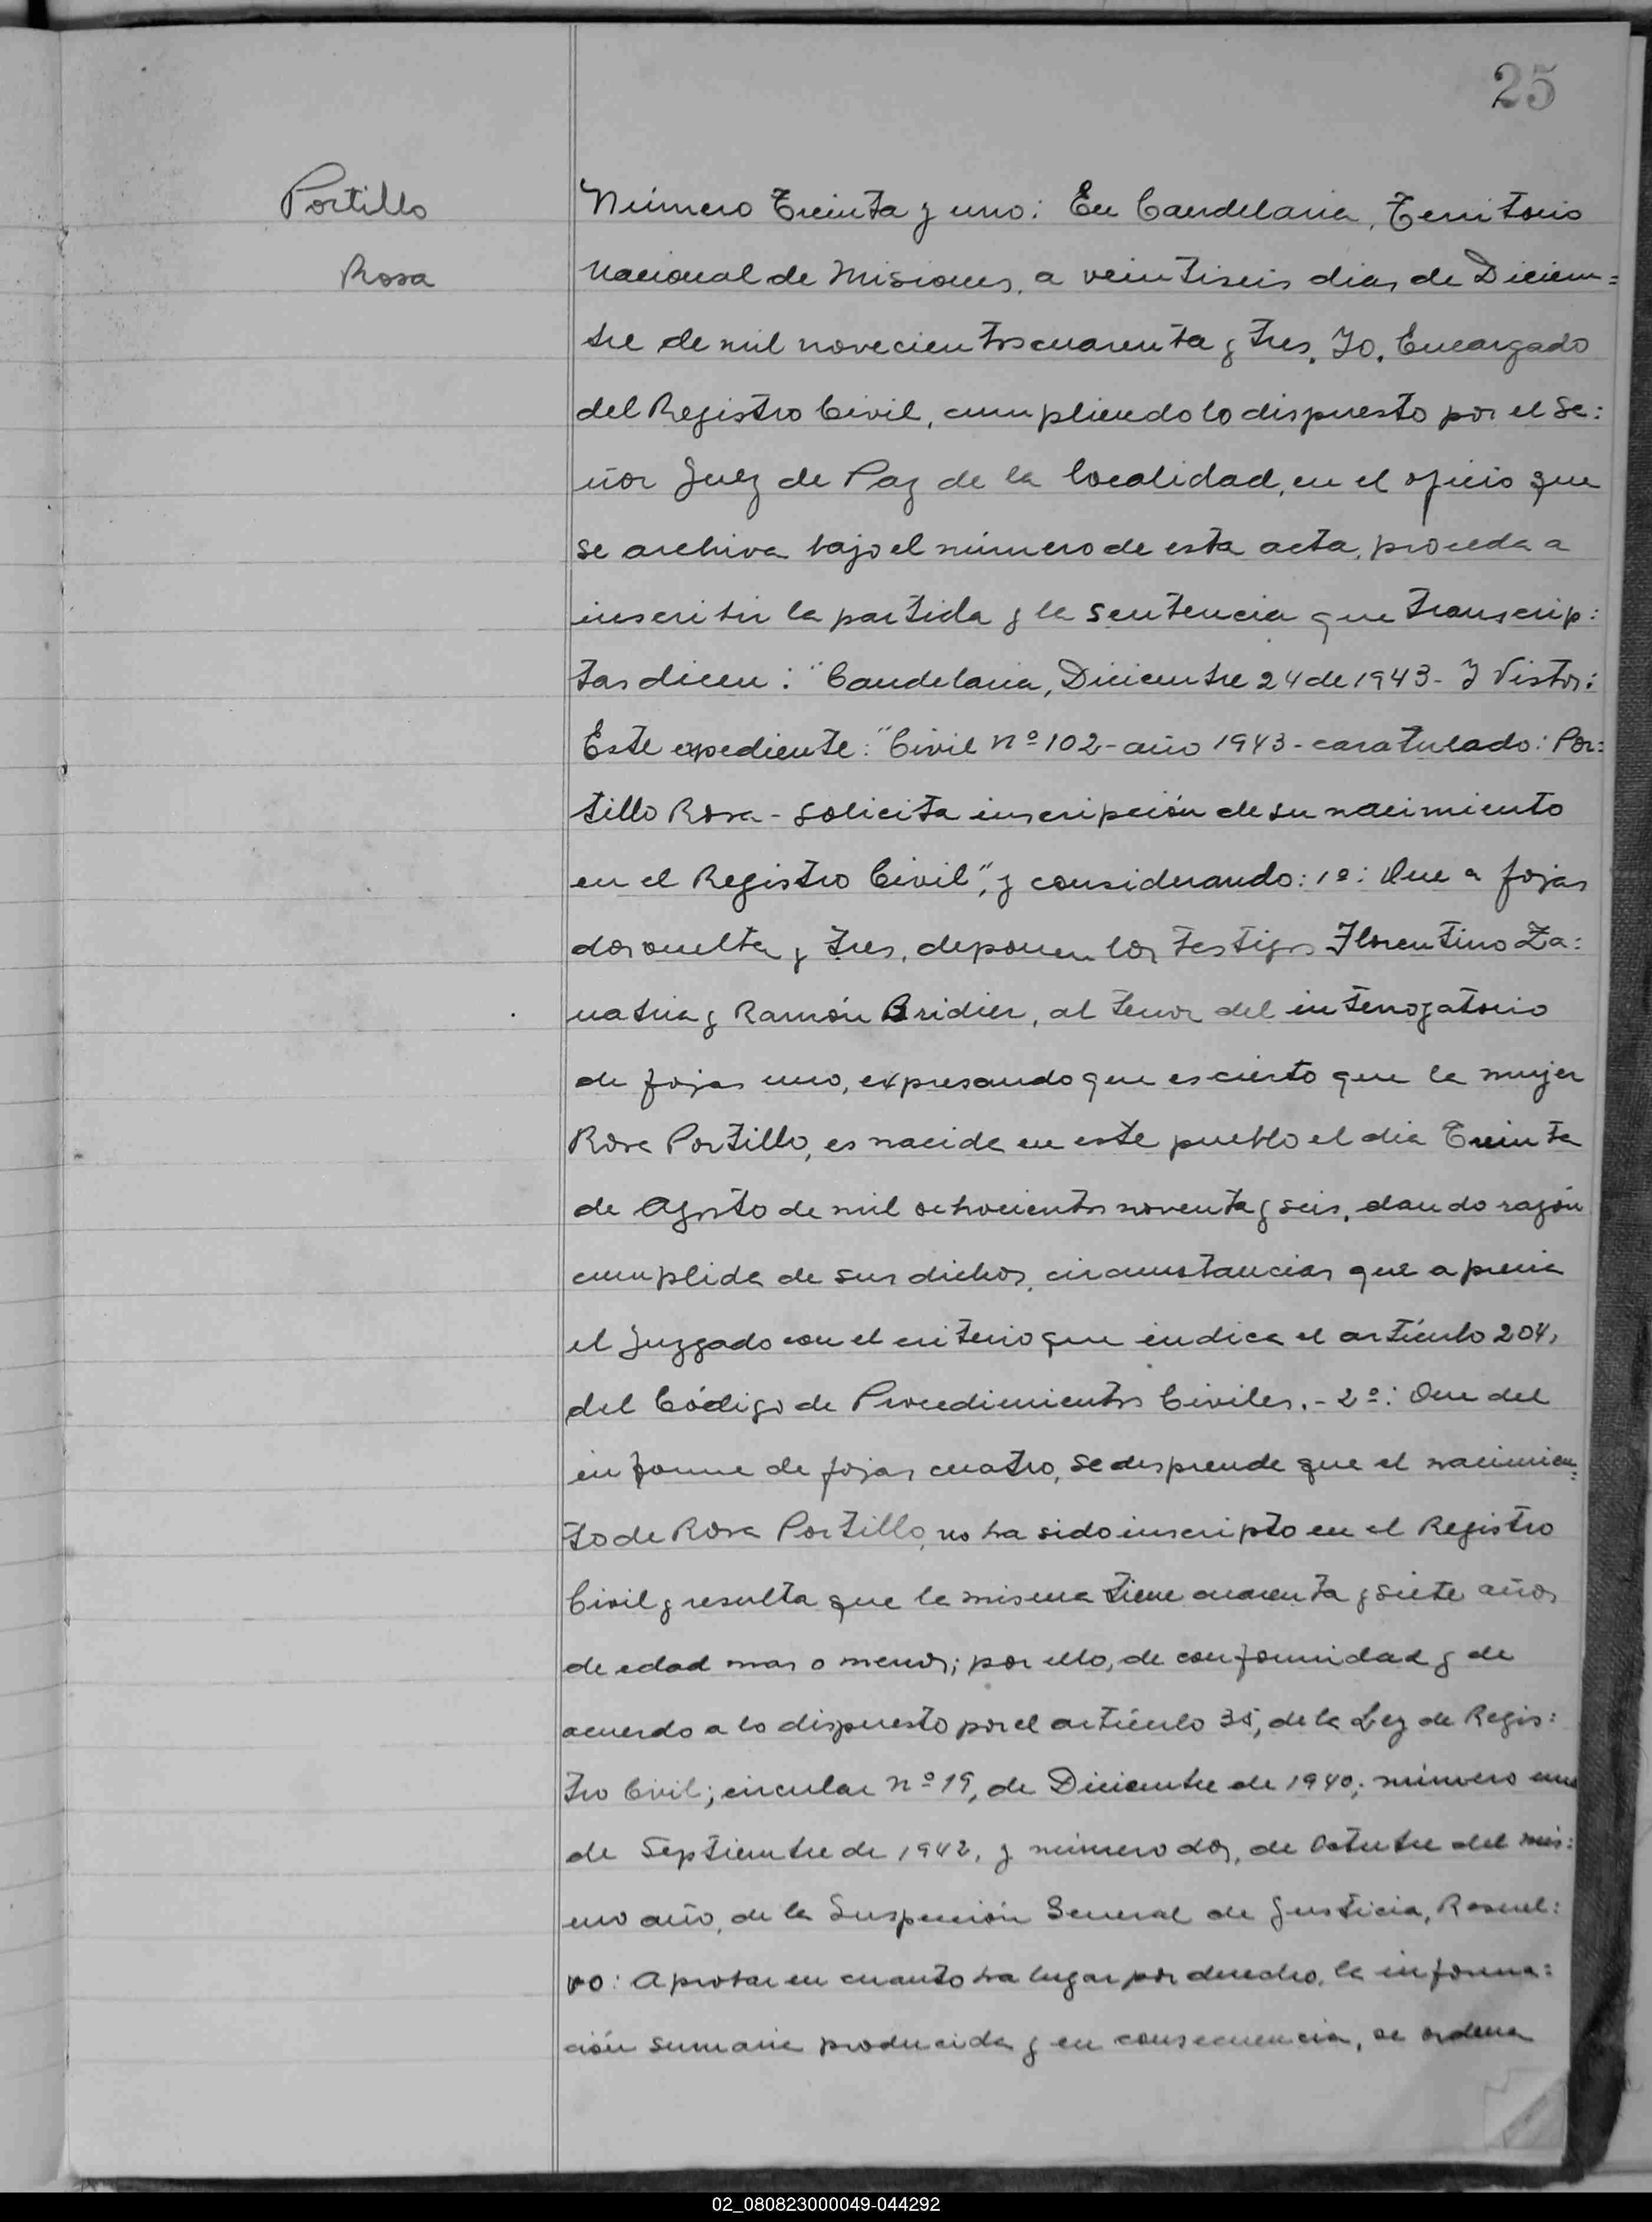 25
Portillo
Rosa
Número Treinta y uno: En Candelaria, Territorio
Nacional de Misiones, a veintiseis dias de Diciem=
bre de mil novecientos cuarenta y tres, Yo, Encargado
del Registro Civil, cumpliendo lo dispuesto por el Se:
ñor Juez de Paz de la localidad, en el oficio que
se archiva bajo el número de esta acta, proceda a
inscribir la partida y la sentencia que transcrip:
tas dicen: "Candelaria, Diciembre 24 de 1943- Y Vistos:
Este expediente: "Civil nº 102- año 1943- caratulado: Por:
tillo Rosa - solicita inscripción de su nacimiento
en el Registro Civil", y considerando: 1º: Que a fojas
dos vuelta y tres, deponen los testigos Florentino Za:
natria y Ramón Bridier, al tenor del interrogatorio
de fojas uno, expresando que es cierto que la mujer
Rosa Portillo, es nacida en este pueblo el dia Treinta
de Agosto de mil ochocientos noventa y seis, dando razón
cumplida de sus dichos, circunstancias que aprecia
el Juzgado con el criterio que indica el artículo 204,
del Código de Procedimientos Civiles.- 2º: Que del
informe de fojas cuatro, se desprende que el nacimien=
to de Rosa Portillo, no ha sido inscripto en el Registro
Civil y resulta que la misma tiene cuarenta y siete años
de edad mas o menos; por ello, de conformidad y de
acuerdo a lo dispuesto por el artículo 35, de la Ley de Regis:
tro Civil; circular nº 19, de Diciembre de 1940; número uno
de Septiembre de 1942, y número dos, de Octubre del mis:
mo año, de la Inspección General de Justicia, Resuel:
vo: Aprobar en cuanto ha lugar por derecho, la informa:
ción sumaria producida y en consecuencia, se ordena
02_080823000049-044292